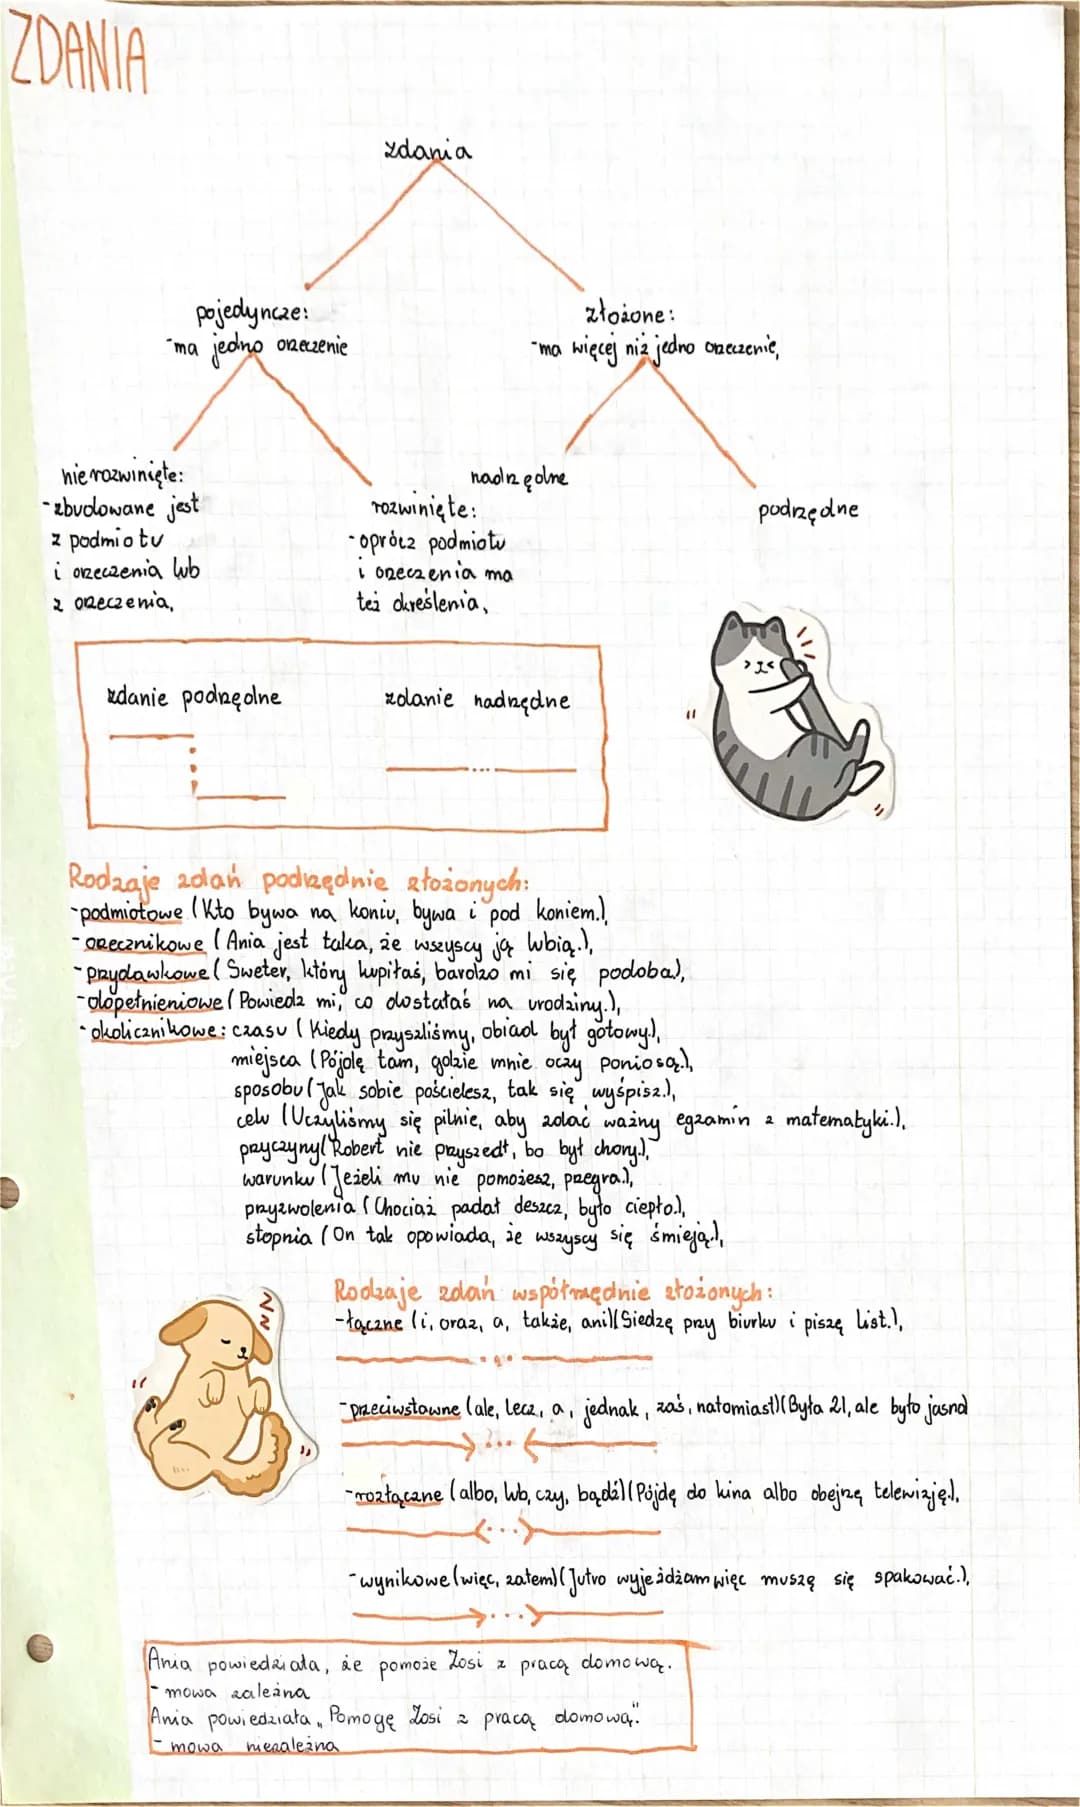 ZDANIA
zdania
pojedyncze:
-ma jedno orzeczenie
złożone:
-ma więcej niż jedno orzeczenie,
nierozwinięte:
-zbudowane jest
z podmiotu
i orzeczenia lub
z orzeczenia,
rozwinięte:
-oprócz podmiotu
i orzeczenia ma
też określenia,
nadrzędne
podrzędne
zdanie podrzędne
zdanie nadrzędne
Rodzaje zdań podrzędnie złożonych:
-podmiotowe (Kto bywa na koniu, bywa i pod koniem.),
-orzecznikowe (Ania jest taka, że wszyscy ją lubią.),
-przydawkowe (Sweter, który kupiłaś, bardzo mi się podoba),
-dopełnieniowe (Powiedz mi, co dostałaś na urodziny.),
-okolicznikowe: czasu (Kiedy przyszliśmy, obiad był gotowy),
miejsca (Pójdę tam, gdzie mnie oczy poniosą.),
sposobu (Jak sobie pościelesz, tak się wyśpisz.),
celu (Uczyliśmy się pilnie, aby zdać ważny egzamin z matematyki.),
przyczyny (Robert nie przyszedł, bo był chory.),
warunku (Jeżeli mu nie pomożesz, przegra.),
przyzwolenia (Chociaż padał deszcz, było ciepło.),
stopnia (On tak opowiada, że wszyscy się śmieją.),
ZZZ
Rodzaje zdań współrzędnie złożonych:
-łączne (i, oraz, a, także, ani)(Siedzę przy biurku i piszę list.),
-przeciwstawne (ale, lecz, a, jednak, zaś, natomiast)(Była 21, ale było jasno)
-rozłączne (albo, lub, czy, bądź)(Pójdę do kina albo obejrzę telewizję.),
-wynikowe (więc, zatem)(Jutro wyjeżdżam więc muszę się spakować.),
Ania powiedziała, że pomoże Zosi z pracą domową.
- mowa zależna
Ania powiedziała „Pomogę Zosi z pracą domową."
- mowa niezależna